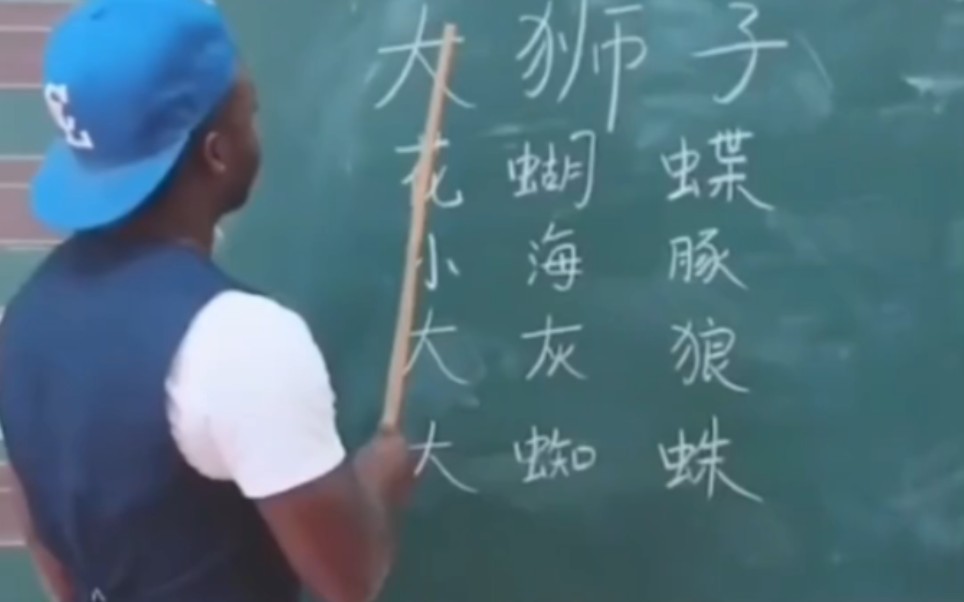 大狮子
花蝴蝶
小海豚
大灰狼
大蜘蛛